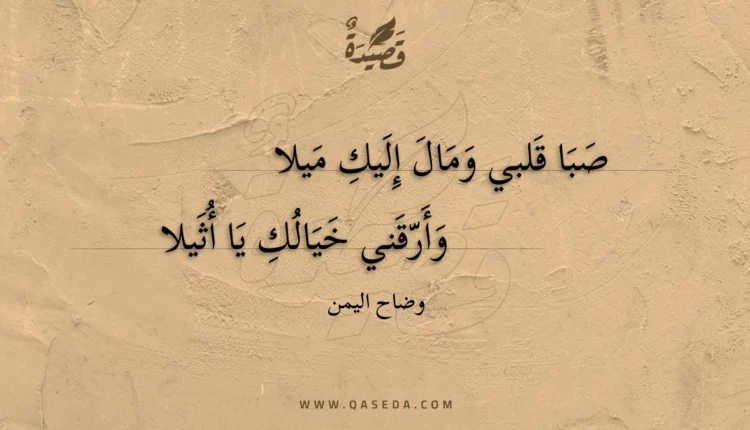 قَصِيْدَةٌ
صَبَا قَلبي وَمَالَ إِلَيكِ مَيلا
وَأَرّقَني خَيَالُكِ يَا أُثَيلا
وضاح اليمن
WWW.QASEDA.COM